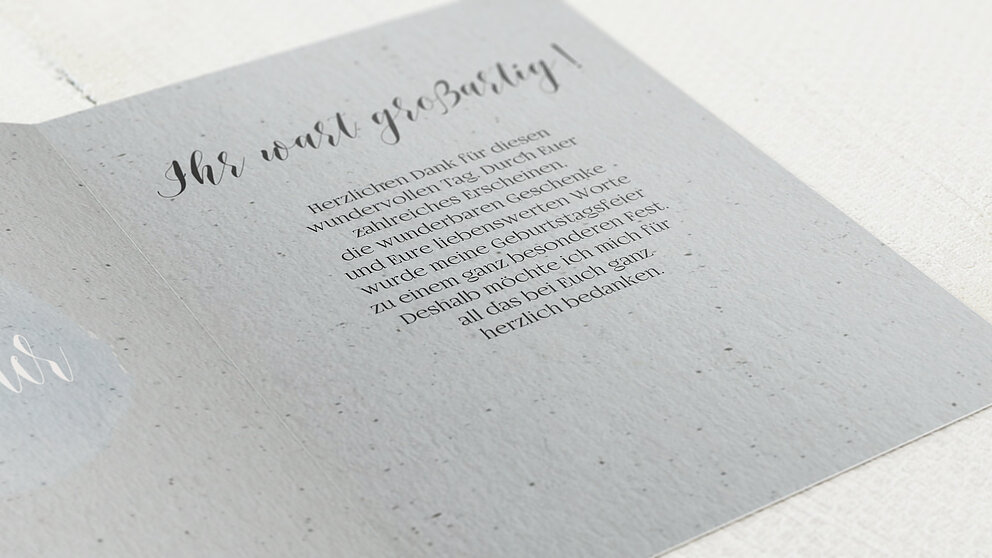 Ihr wart großartig!
Herzlichen Dank für diesen
wundervollen Tag. Durch Euer
zahlreiches Erscheinen,
die wunderbaren Geschenke
und Eure liebenswerten Worte
wurde meine Geburtstagsfeier
zu einem ganz besonderen Fest.
Deshalb möchte ich mich für
all das bei Euch ganz
herzlich bedanken.